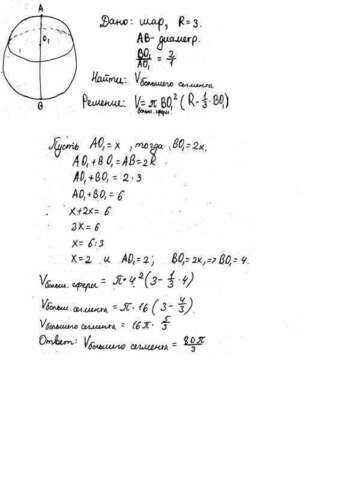 A
O₁
B
Дано: шар, R=3.
AB-диаметр.
BO₁/AO₁ = 2/1
Найти: V большего сегмента
Решение: V = π BO₁² (R - 1/3 · BO₁)
Пусть AO₁ = x, тогда BO₁ = 2x.
AO₁ + BO₁ = AB = 2R
AO₁ + BO₁ = 2 · 3
AO₁ + BO₁ = 6
x + 2x = 6
3x = 6
x = 6:3
x = 2 и AO₁ = 2; BO₁ = 2x, => BO₁ = 4.
V больш. сферы = π · 4² (3 - 1/3 · 4)
V больш. сегмента = π · 16 (3 - 4/3)
V большего сегмента = 16π · 5/3
Ответ: V большего сегмента = 80π/3